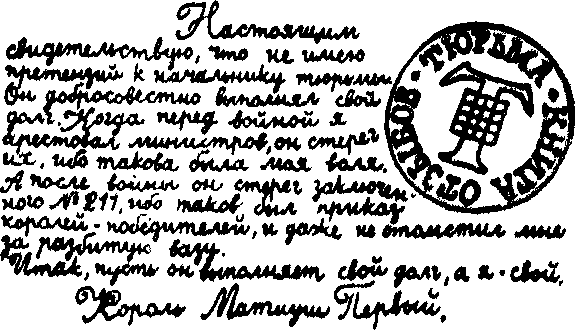 Настоящим
свидетельствую, что не имею
претензий к начальнику тюрьмы.
Он добросовестно выполнял свой
долг. Когда перед войной я
арестовал министров, он стерег
их, ибо такова была моя воля.
А после войны он стерег заключен-
ного № 211, ибо таков был приказ
королей-победителей, и даже не отомстил мне
за разбитую вазу.
Итак, пусть он выполняет свой долг, а я - свой.
Король Матиуш Первый.
ТЮРЬМА · КНИГА ОТЗЫВОВ ·